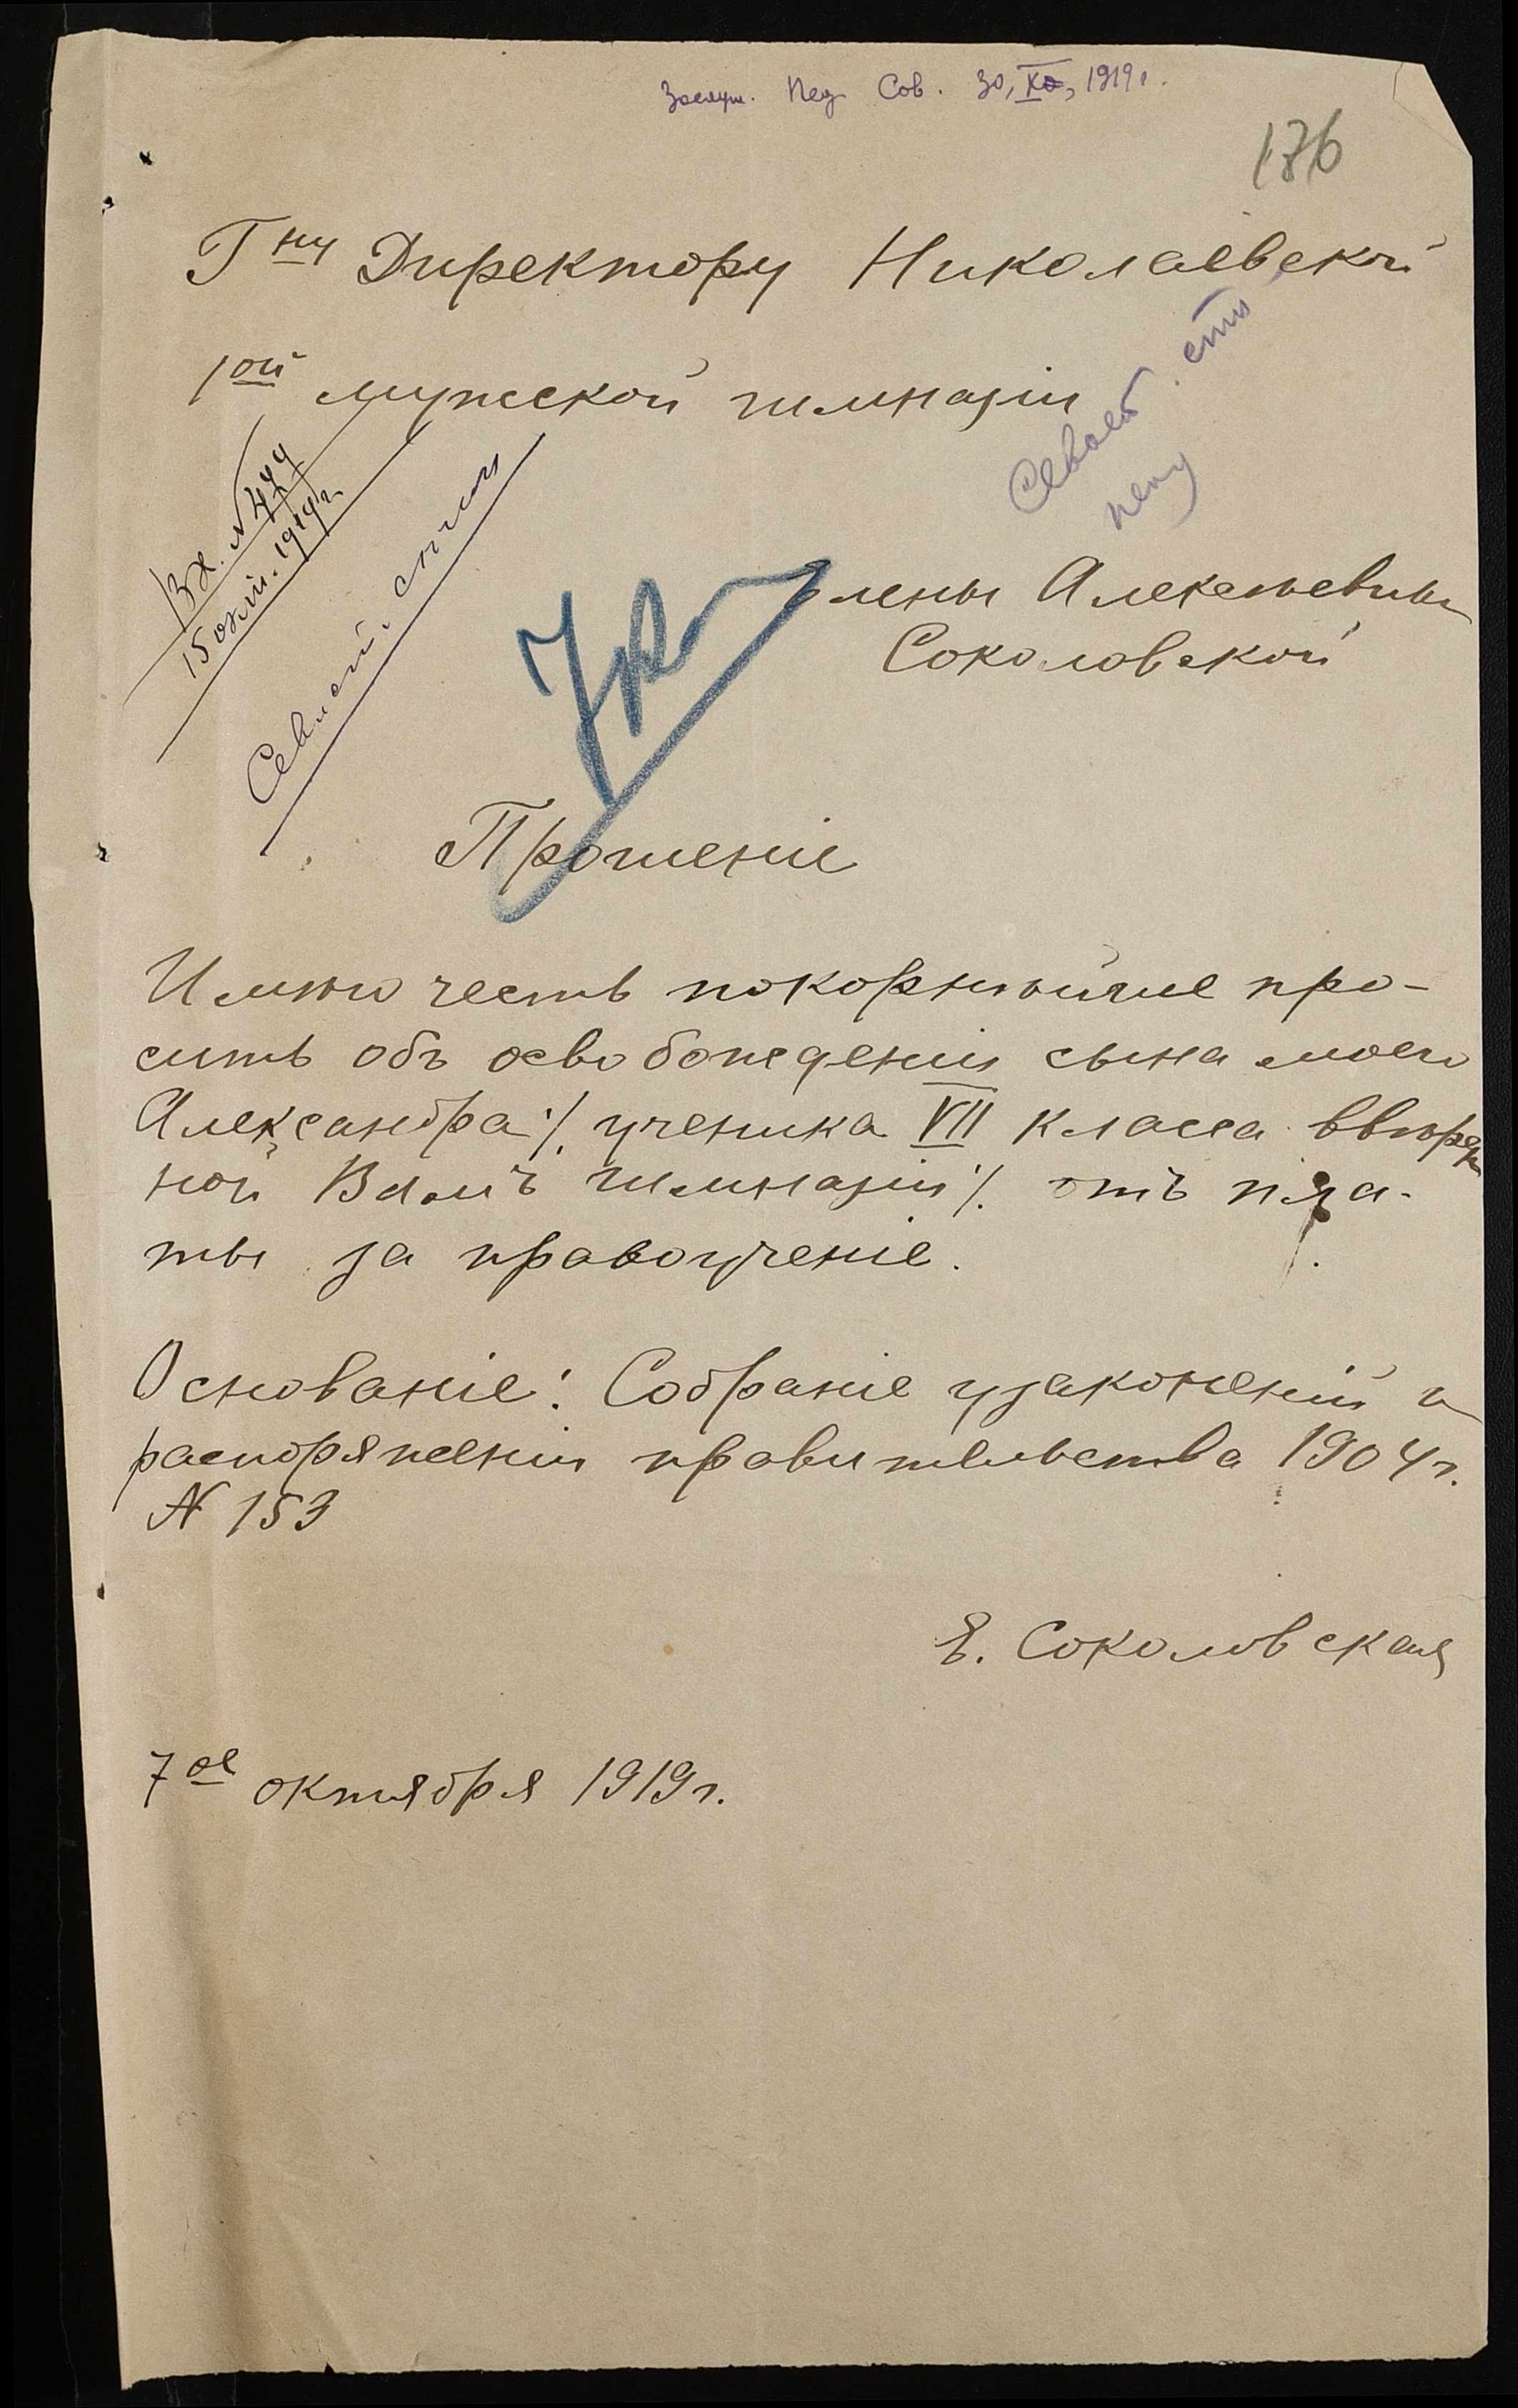 Заслуш. Пед. Сов. 30, 1919 г.
176
Гну Директору Николаевской
1ой мужской гимназіи
Вх. №
15 окт. 1919 г.
Севаст.
Елены Алексѣевны
Соколовской
Прошеніе
Имѣю честь покорнѣйше про-
сить объ освобожденіи сына моего
Александра /. ученика VII класса ввѣрен
ной Вамъ гимназіи /. отъ пла-
ты за правоученіе.
Основаніе: Собраніе узаконеній и
распоряженій правительства 1904 г.
№ 153
Е. Соколовская
7ое октября 1919 г.